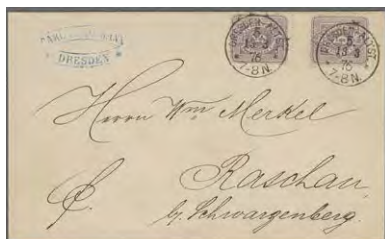 DRESDEN
DRESDEN-ALTST.
13 3
76
7-8 N.
DRESDEN-ALTST.
13 3
76
7-8 N.
Herrn Wm Merkel
Raschau
b/ Schwarzenberg.